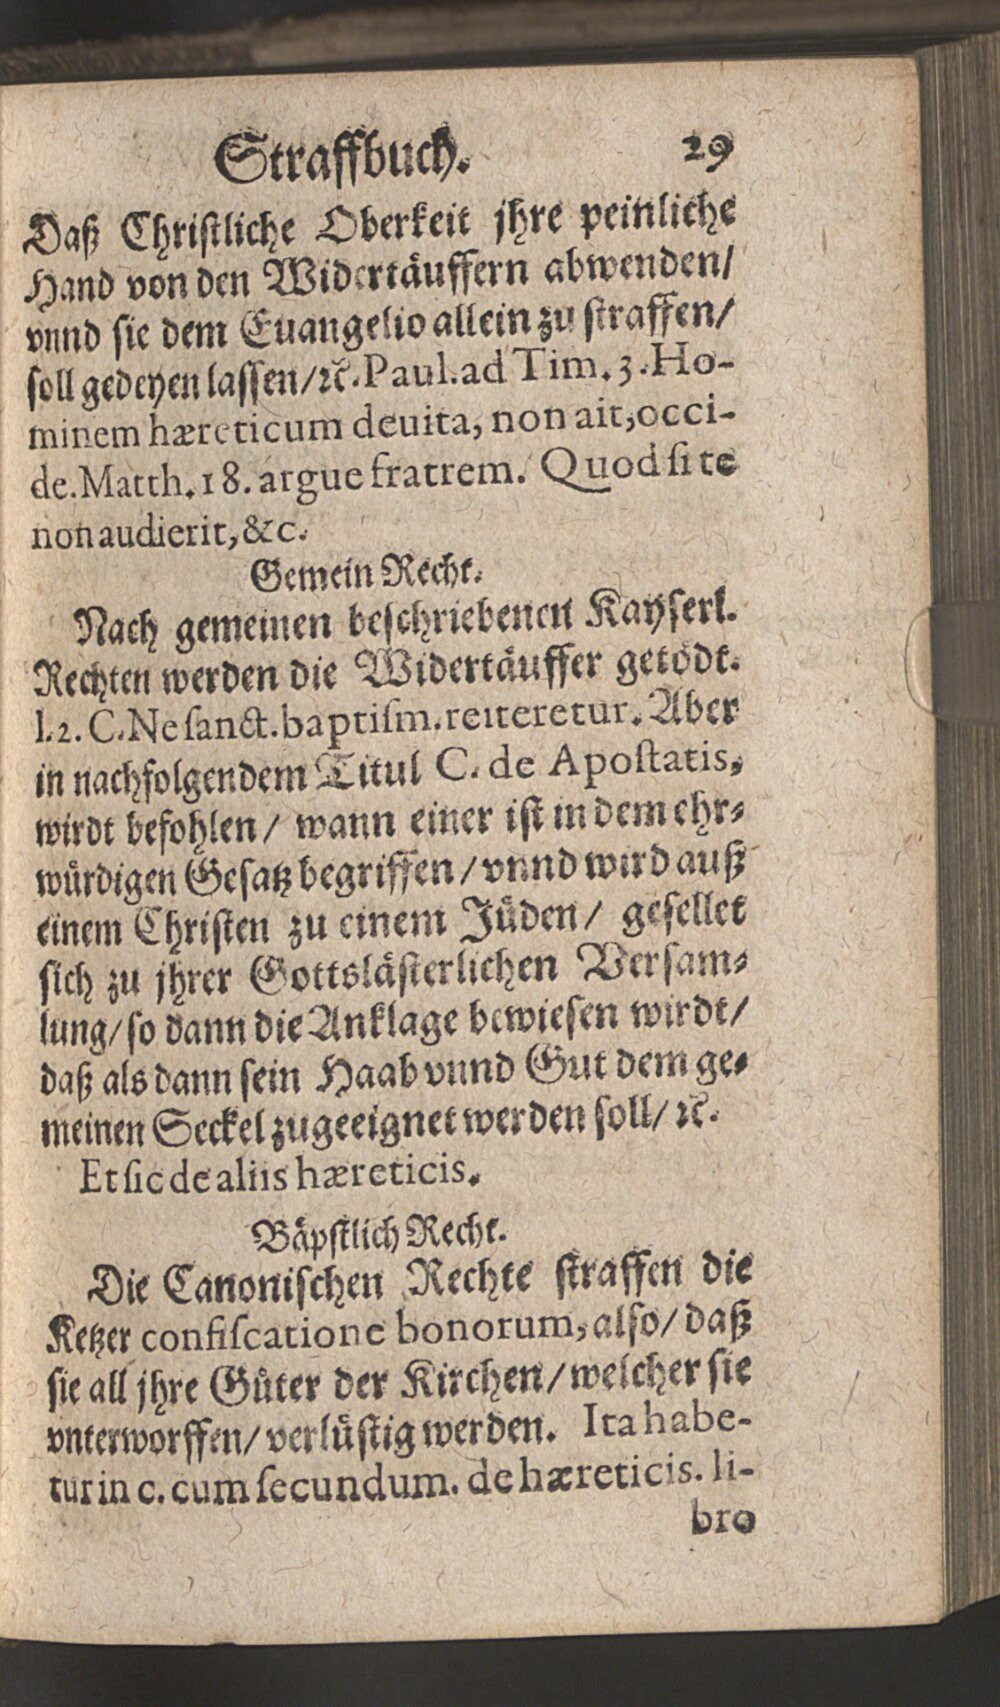 Straffbuch. 29
Daß Christliche Oberkeit jhre peinliche
Hand von den Widertäuffern abwenden/
vnnd sie dem Euangelio allein zu straffen/
soll gedeyen lassen/ꝛc̃. Paul. ad Tim. 3. Ho-
minem hæreticum deuita, non ait, occi-
de. Matth. 18. argue fratrem. Quod ſi te
non audierit, &c.
Gemein Recht.
Nach gemeinen beschriebenen Kayserl.
Rechten werden die Widertäuffer getödt.
l. 2. C. Ne ſanct. baptiſm. reiteretur. Aber
in nachfolgendem Titul C. de Apoſtatis,
wirdt befohlen/ wann einer ist in dem ehr⸗
würdigen Gesatz begriffen/ vnnd wird auß
einem Christen zu einem Jüden/ gesellet
sich zu jhrer Gottslästerlichen Versam⸗
lung/ so dann die Anklage bewiesen wirdt/
daß als dann sein Haab vnnd Gut dem ge⸗
meinen Seckel zugeeignet werden soll/ ꝛc̃.
Et ſic de aliis hæreticis.
Bäpstlich Recht.
Die Canonischen Rechte straffen die
Ketzer confiſcatione bonorum, also/ daß
sie all jhre Güter der Kirchen/ welcher sie
vnterworffen/ verlüstig werden. Ita habe-
tur in c. cum ſecundum. de hæreticis. li-
bro